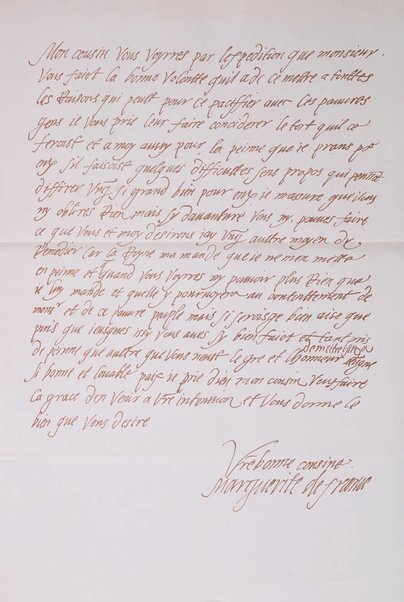 Mon cousin Vous Voyrres par lespedition que monsieur
Vous faict la bonne Volontte quil a de ce mettre a touttes
les Raisons qui peult pour ce pacifier avec ces pauvres
gens ie Vous prie leur faire conciderer le tort quil ce
feroist et a moy aussy pour la peime que ie prans por
S'il faisoist quelques difficultes sens propos qui
differer Vng si grand bien pour ie masure que
ny oblires Rien mais sy davanture Vous ny pouves faire
ce que Vous et moy desirons iay Vng aultre moyen de
Remedier Car la Royne ma mande que ie ne men metta
en peime et quand Vous Voyrres ny pouvoir plus Rien que
ie luy mande et quelle y pourvoyera au contenttement de
monsr et de ce pauvre peuple mais si ieresge bien aise que
puis que issy Vous aves sy bien faict et tant pris
de peime que aultre que Vous neust le gre et lhonneur
de mettre fin a
Si bonne et louable paix ie prie dieu mon cousin Vous faire
la grace den Venir a Vre intenssion et Vous donne le
bien que Vous desire
Vre bonne cousine
Marguerite de france